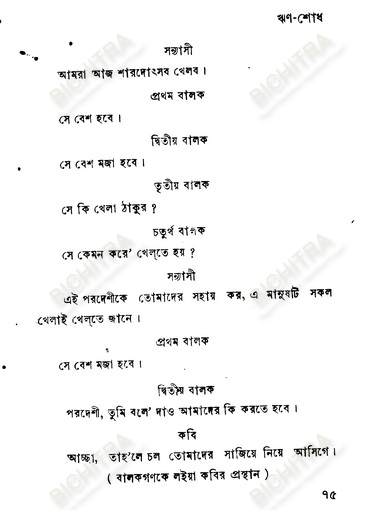 ঋণ-শোধ
সন্ন্যাসী
আমরা আজ শারদোৎসব খেলব।
প্রথম বালক
সে বেশ হবে।
দ্বিতীয় বালক
সে বেশ মজা হবে।
তৃতীয় বালক
সে কি খেলা ঠাকুর ?
চতুর্থ বালক
সে কেমন করে' খেল্‌তে হয় ?
সন্ন্যাসী
এই পরদেশীকে তোমাদের সহায় কর, এ মানুষটি সকল
খেলাই খেল্‌তে জানে।
প্রথম বালক
সে বেশ মজা হবে।
দ্বিতীয় বালক
পরদেশী, তুমি বলে' দাও আমাদের কি করতে হবে।
কবি
আচ্ছা, তাহ'লে চল তোমাদের সাজিয়ে নিয়ে আসিগে।
( বালকগণকে লইয়া কবির প্রস্থান )
৭৫
BICHITRA
BICHITRA
BICHITRA
BICHITRA
BICHITRA
BICHITRA